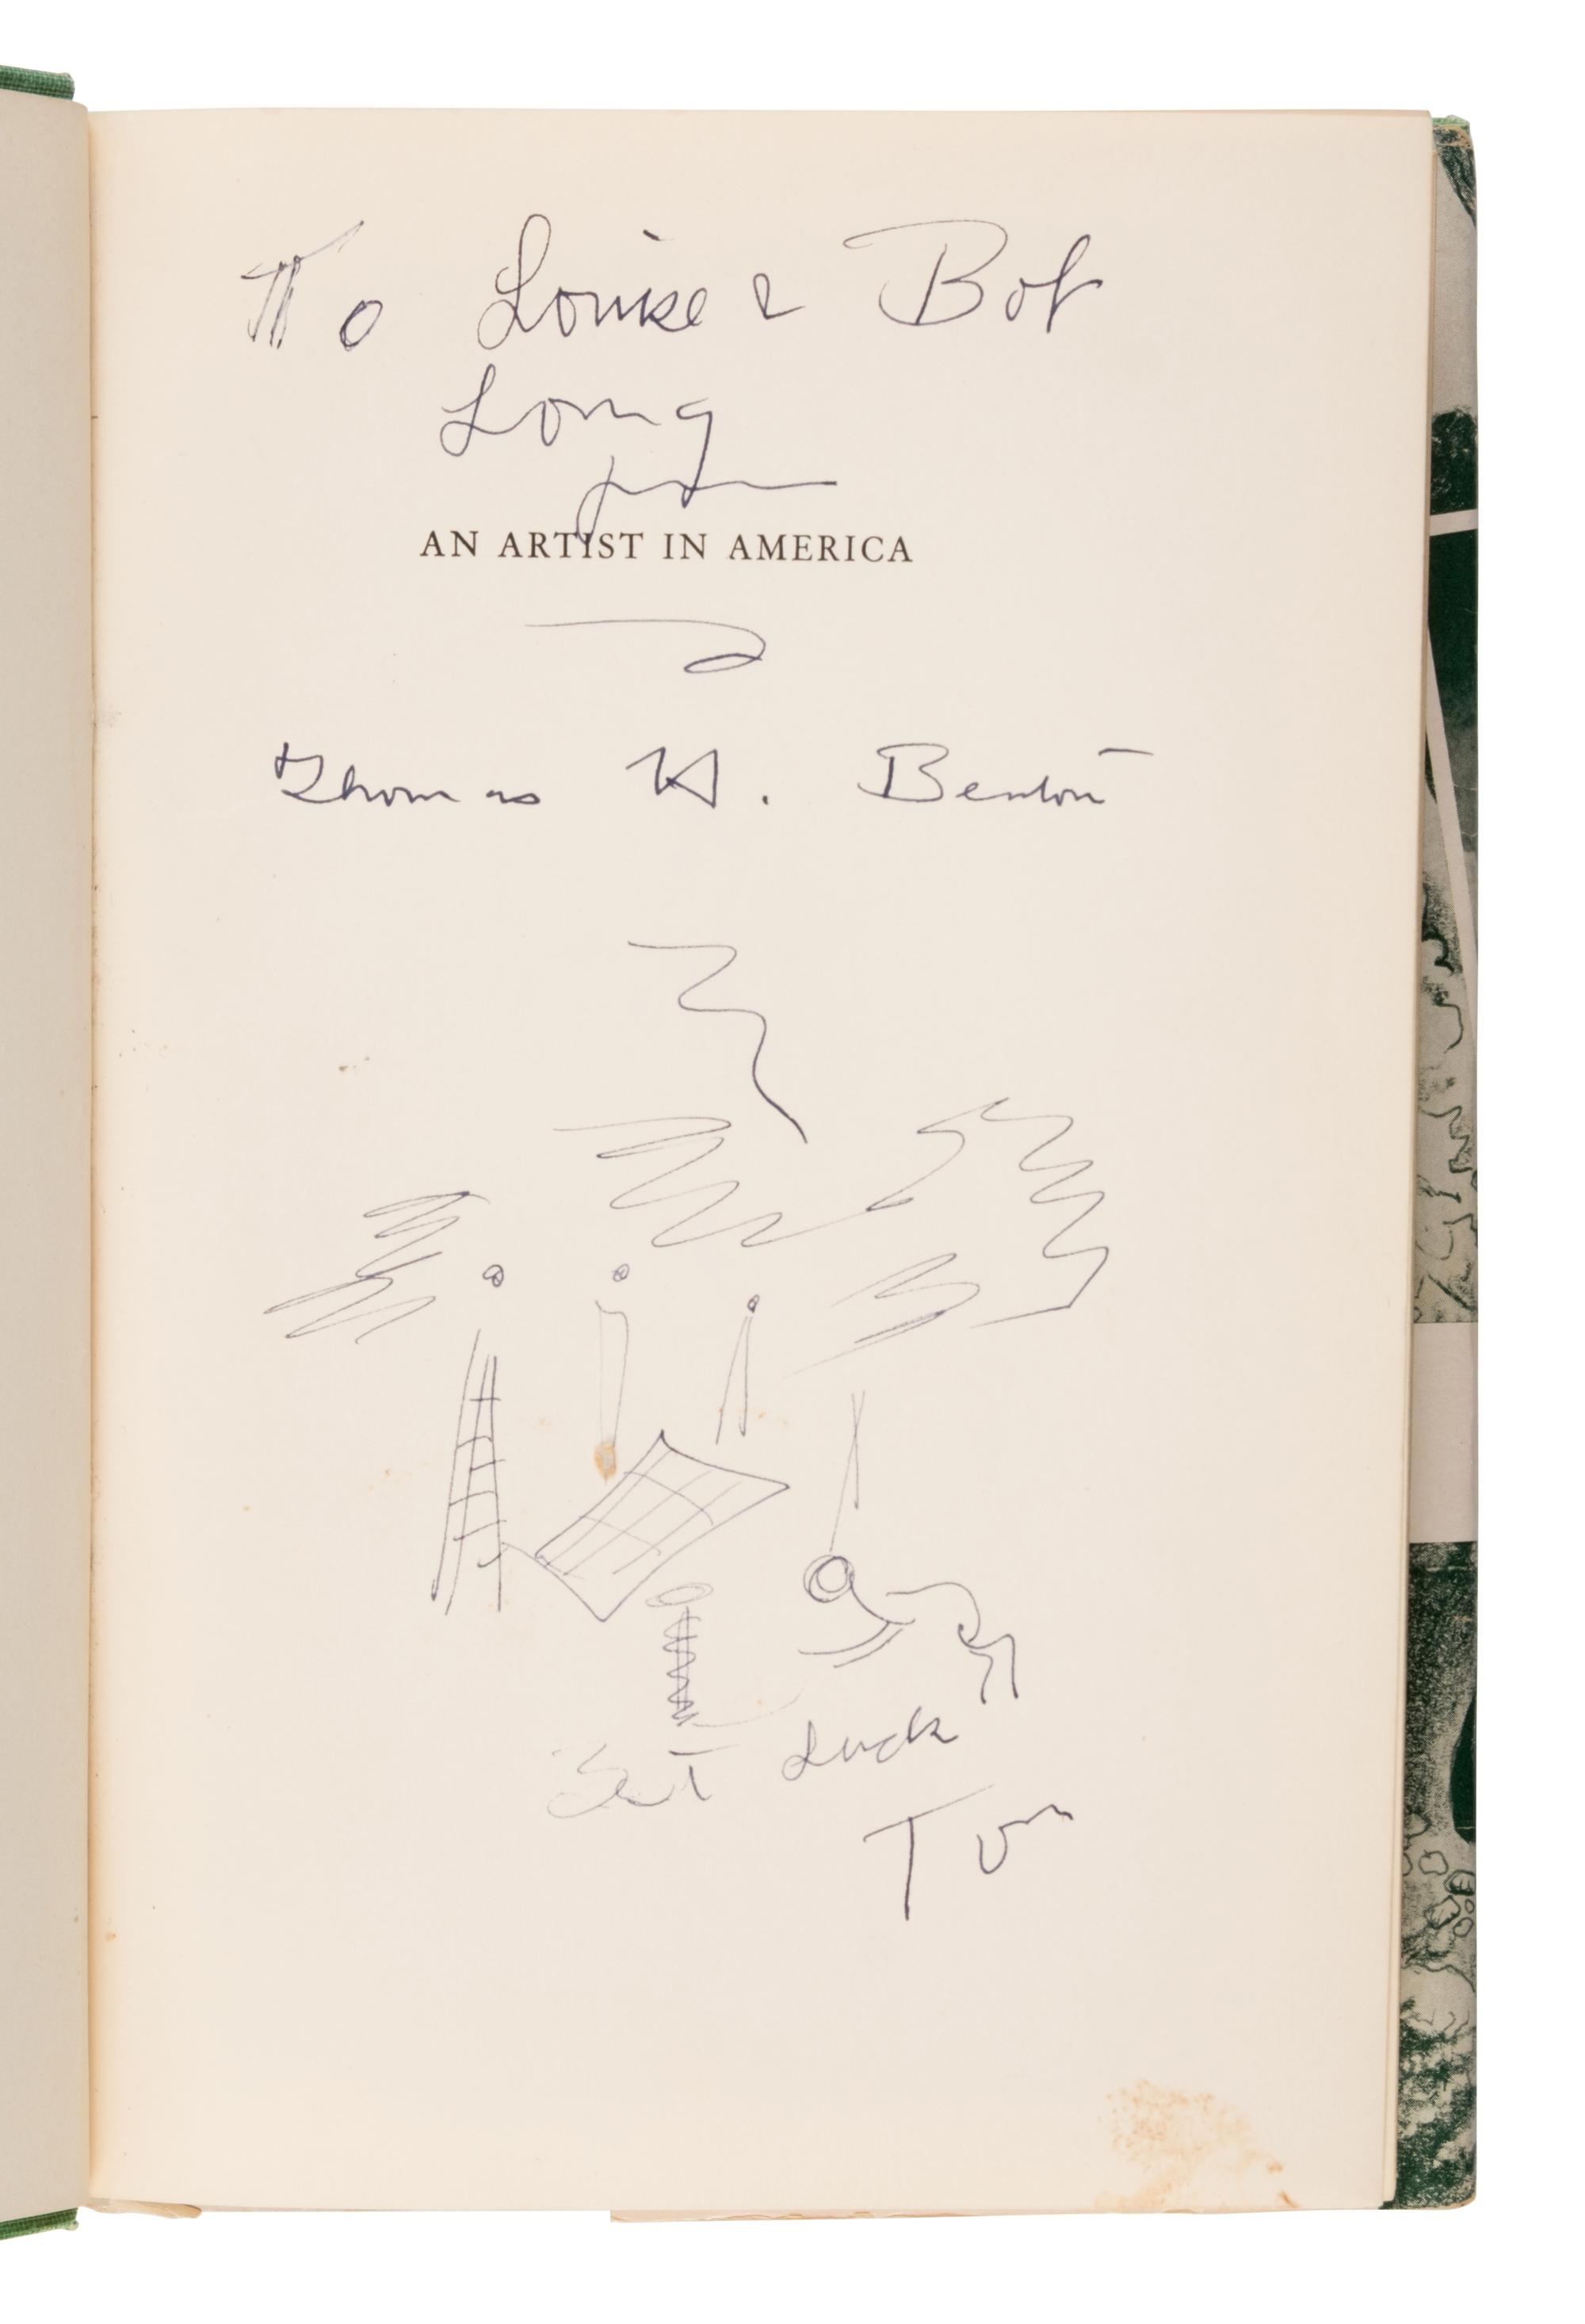 To Louise & Bob
Long
from
AN ARTIST IN AMERICA
Thomas H. Benton
Best Luck
Tom